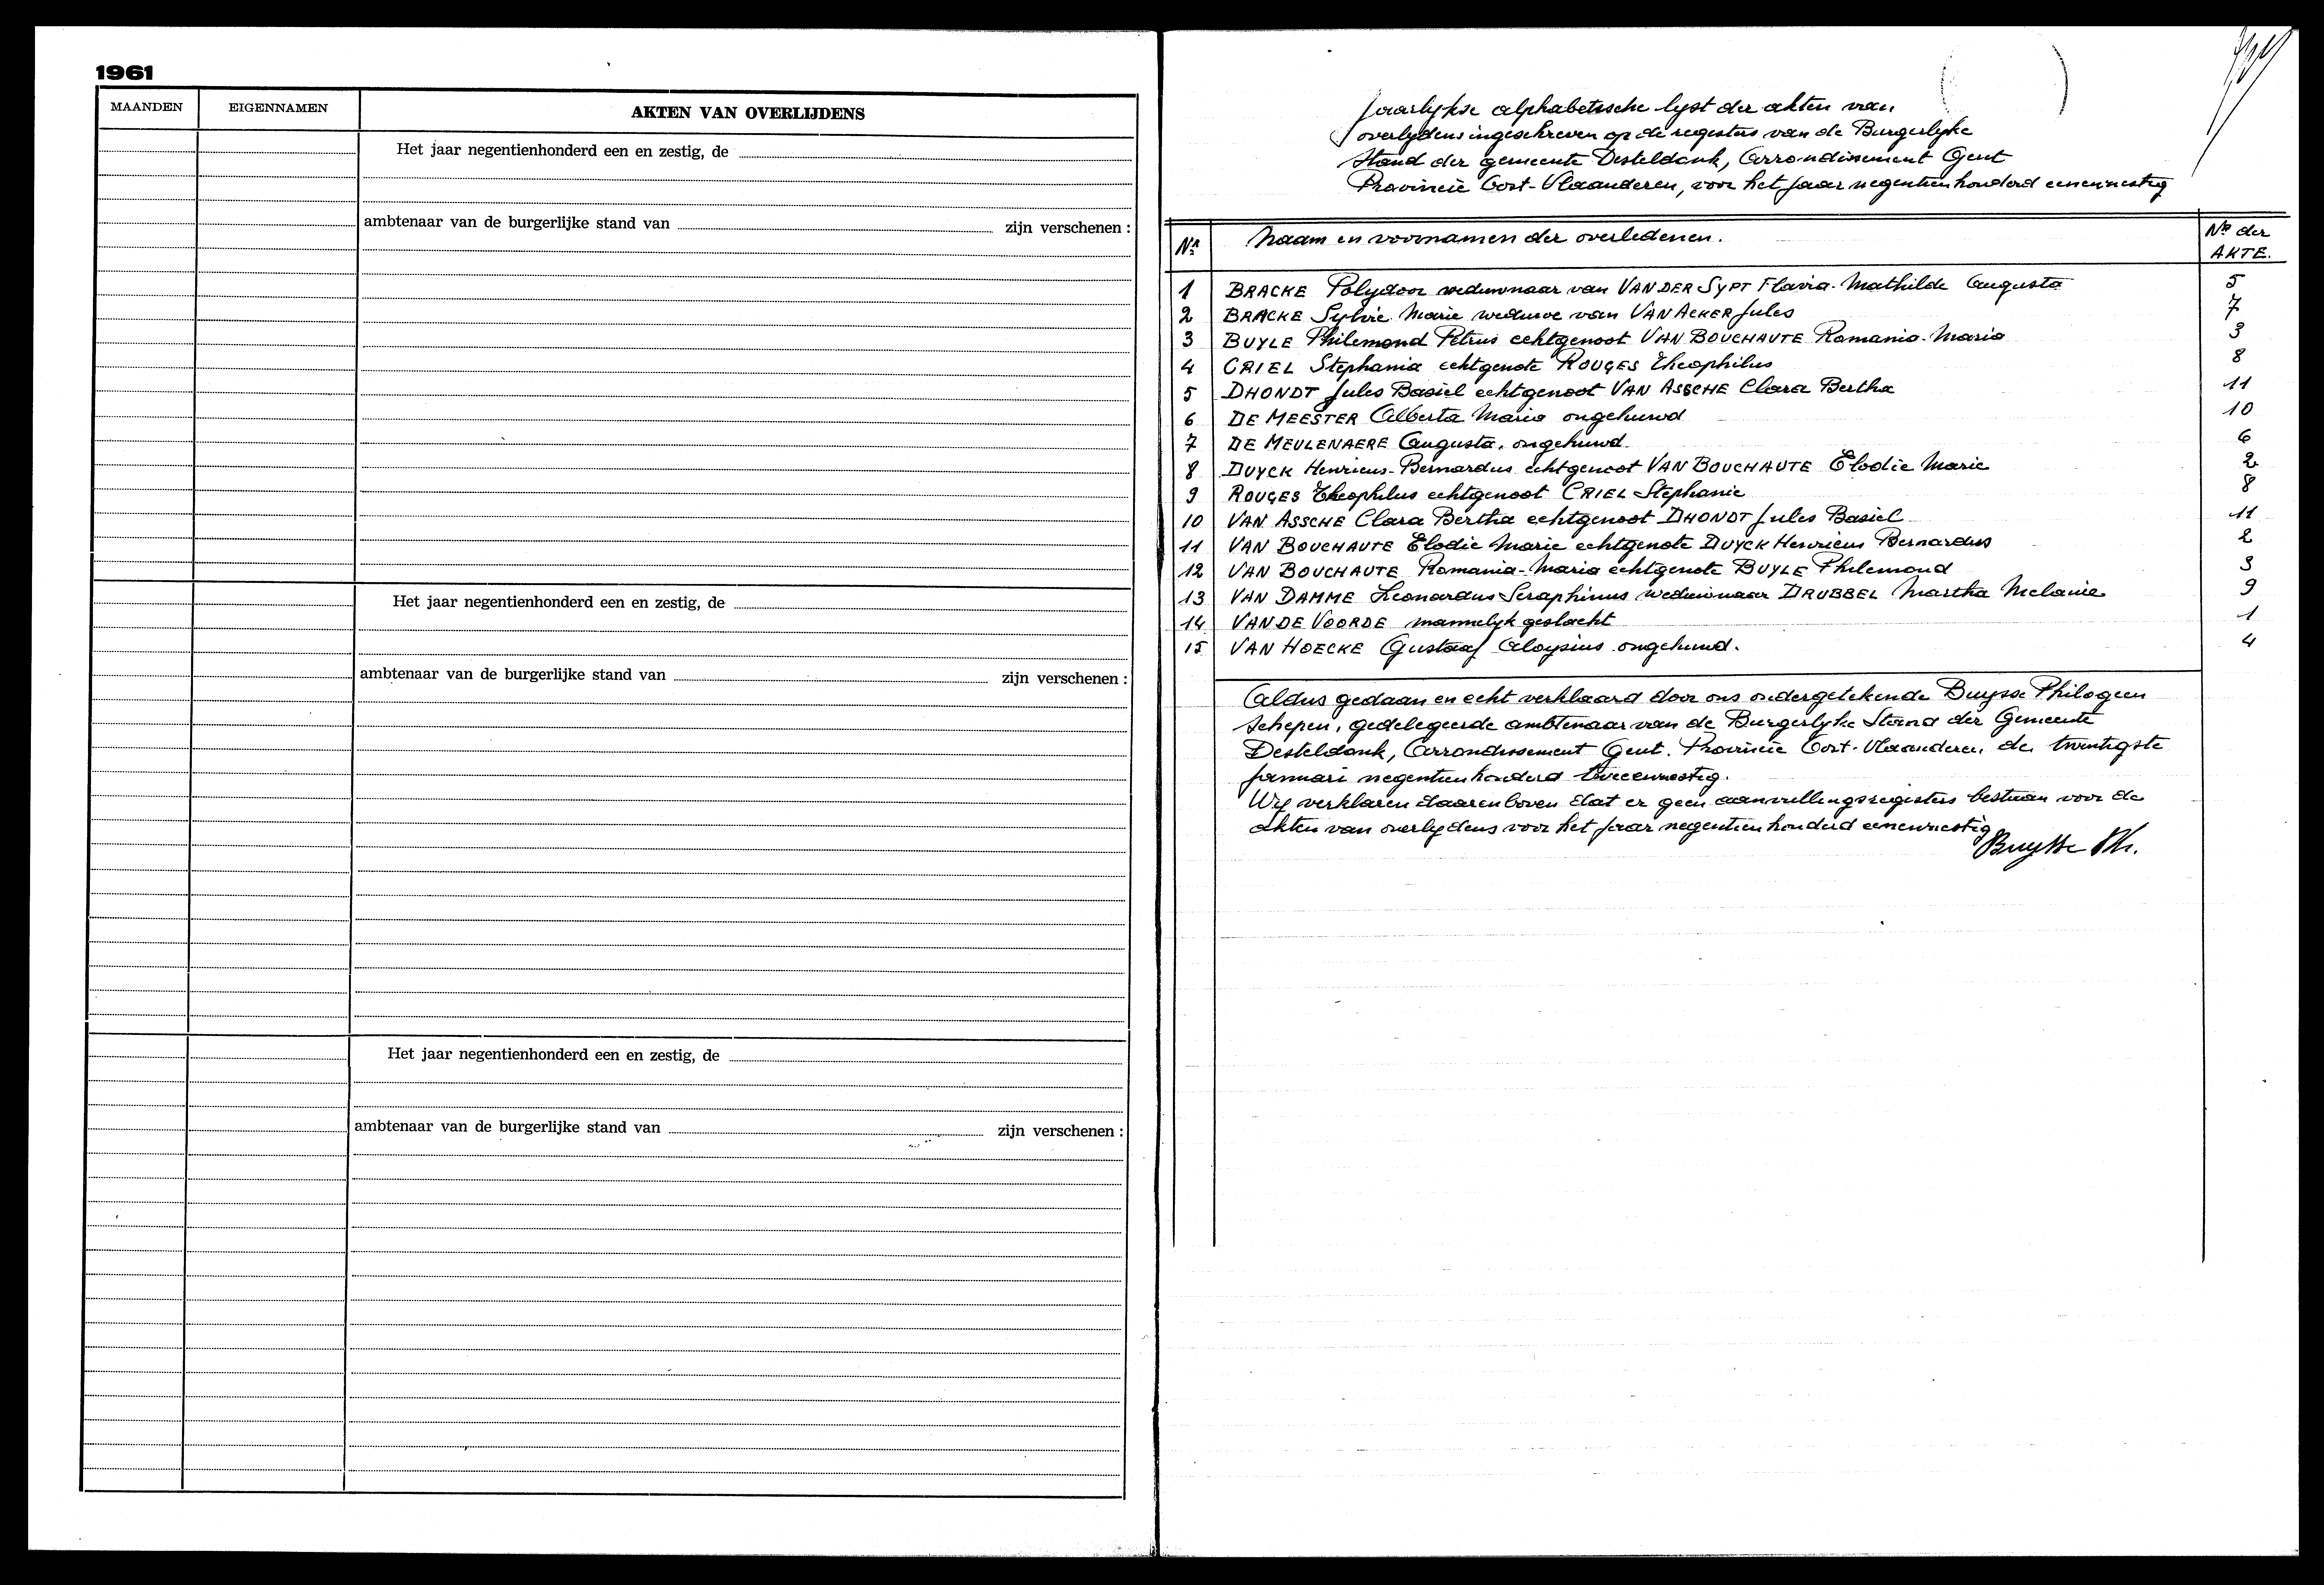 1961
MAANDEN EIGENNAMEN AKTEN VAN OVERLIJDENS
Het jaar negentienhonderd een en zestig, de
ambtenaar van de burgerlijke stand van zijn verschenen :
Het jaar negentienhonderd een en zestig, de
ambtenaar van de burgerlijke stand van zijn verschenen :
Het jaar negentienhonderd een en zestig, de
ambtenaar van de burgerlijke stand van zijn verschenen :
Jaarlykse alphabetische lyst der akten van
overlydens ingeschreven op de registers van de Burgerlyke
Stand der gemeente Desteldonk, Arrondissement Gent
Provincie Oost-Vlaanderen, voor het jaar negentienhonderd eenenzestig
Nr Naam en voornamen der overledenen. No der AKTE.
1 BRACKE Polydoor weduwnaar van VAN DER SYPT Flavia-Mathilde Augusta 5
2 BRACKE Sylvie Marie weduwe van VAN ACKER Jules 7
3 BUYLE Philemond Petrus echtgenoot VAN BOUCHAUTE Romania-Maria 3
4 CRIEL Stephania echtgenote ROUGES Theophilus 8
5 DHONDT Jules Basiel echtgenoot VAN ASSCHE Clara Bertha 11
6 DE MEESTER Alberta Maria ongehuwd 10
7 DE MEULENAERE Augusta, ongehuwd 6
8 DUYCK Henricus-Bernardus echtgenoot VAN BOUCHAUTE Elodie Marie 2
9 ROUGES Theophilus echtgenoot CRIEL Stephanie 8
10 VAN ASSCHE Clara Bertha echtgenoot DHONDT Jules Basiel 11
11 VAN BOUCHAUTE Elodie Marie echtgenote DUYCK Henricus Bernardus 2
12 VAN BOUCHAUTE Romania-Maria echtgenote BUYLE Philemond 3
13 VAN DAMME Leonardus Seraphinus weduwnaar DRUBBEL Martha Melanie 9
14 VAN DE VOORDE mannelyk geslacht 1
15 VAN HOECKE Gustaaf Aloysius ongehuwd. 4
Aldus gedaan en echt verklaard door ons ondergetekende Buysse Philogeen
Schepen, gedelegeerde ambtenaar van de Burgerlyke Stand der Gemeente
Desteldonk, Arrondissement Gent. Provincie Oost-Vlaanderen, de twintigste
januari negentienhonderd tweeenzestig.
Wy verklaren daarenboven dat er geen aanvullingsregisters bestaan voor de
akten van overlydens voor het jaar negentienhonderd eenenzestig
Buysse Ph.